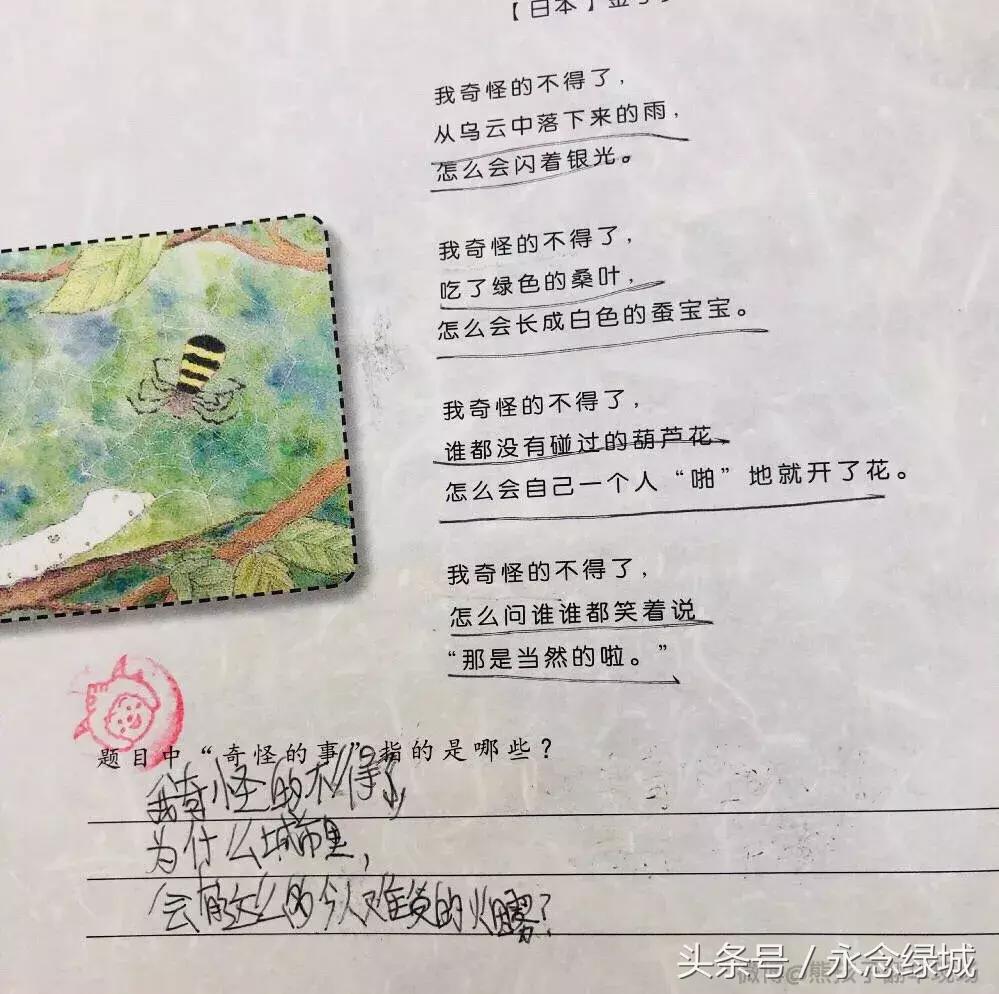 【日本】金子
我奇怪的不得了，
从乌云中落下来的雨，
怎么会闪着银光。
我奇怪的不得了，
吃了绿色的桑叶，
怎么会长成白色的蚕宝宝。
我奇怪的不得了，
谁都没有碰过的葫芦花，
怎么会自己一个人“啪”地就开了花。
我奇怪的不得了，
怎么问谁谁都笑着说
“那是当然的啦。”
题目中“奇怪的事”指的是哪些？
我奇怪的不得了，
为什么城市里，
会有这么的令人难的烟雾？
头条号 / 永念绿城
微博@熊孩子翻车现场